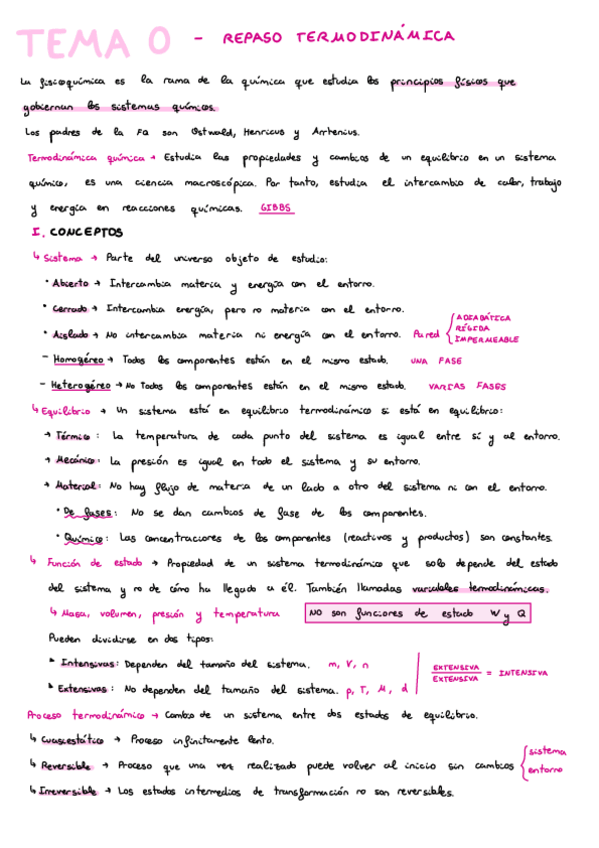 TEMA 0 - REPASO TERMODINÁMICA
La fisicoquímica es la rama de la química que estudia los principios físicos que
gobiernan los sistemas químicos.
Los padres de la FQ son Ostwald, Henricus y Arrhenius.
Termodinámica química → Estudia las propiedades y cambios de un equilibrio en un sistema
químico, es una ciencia macroscópica. Por tanto, estudia el intercambio de calor, trabajo
y energía en reacciones químicas. GIBBS
I. CONCEPTOS
↳ Sistema → Parte del universo objeto de estudio:
• Abierto → Intercambia materia y energía con el entorno.
• Cerrado → Intercambia energía, pero no materia con el entorno.
• Aislado → No intercambia materia ni energía con el entorno. Pared { ADIABÁTICA
RÍGIDA
IMPERMEABLE
- Homogéneo → Todos los componentes están en el mismo estado. UNA FASE
- Heterogéneo → No todos los componentes están en el mismo estado. VARIAS FASES
↳ Equilibrio → Un sistema está en equilibrio termodinámico si está en equilibrio:
→ Térmico: La temperatura de cada punto del sistema es igual entre sí y al entorno.
→ Mecánico: La presión es igual en todo el sistema y su entorno.
→ Material: No hay flujo de materia de un lado a otro del sistema ni con el entorno.
• De fases: No se dan cambios de fase de los componentes.
• Químico: Las concentraciones de los componentes (reactivos y productos) son constantes.
↳ Función de estado → Propiedad de un sistema termodinámico que solo depende del estado
del sistema y no de cómo ha llegado a él. También llamadas variables termodinámicas.
↳ Masa, volumen, presión y temperatura NO son funciones de estado W y Q
Pueden dividirse en dos tipos:
• Intensivas: Dependen del tamaño del sistema. m, V, n
• Extensivas: No dependen del tamaño del sistema. p, T, M, d
EXTENSIVA / EXTENSIVA = INTENSIVA
Proceso termodinámico → Cambio de un sistema entre dos estados de equilibrio.
↳ Cuasiestático → Proceso infinitamente lento.
↳ Reversible → Proceso que una vez realizado puede volver al inicio sin cambios { sistema
entorno
↳ Irreversible → Los estados intermedios de transformación no son reversibles.